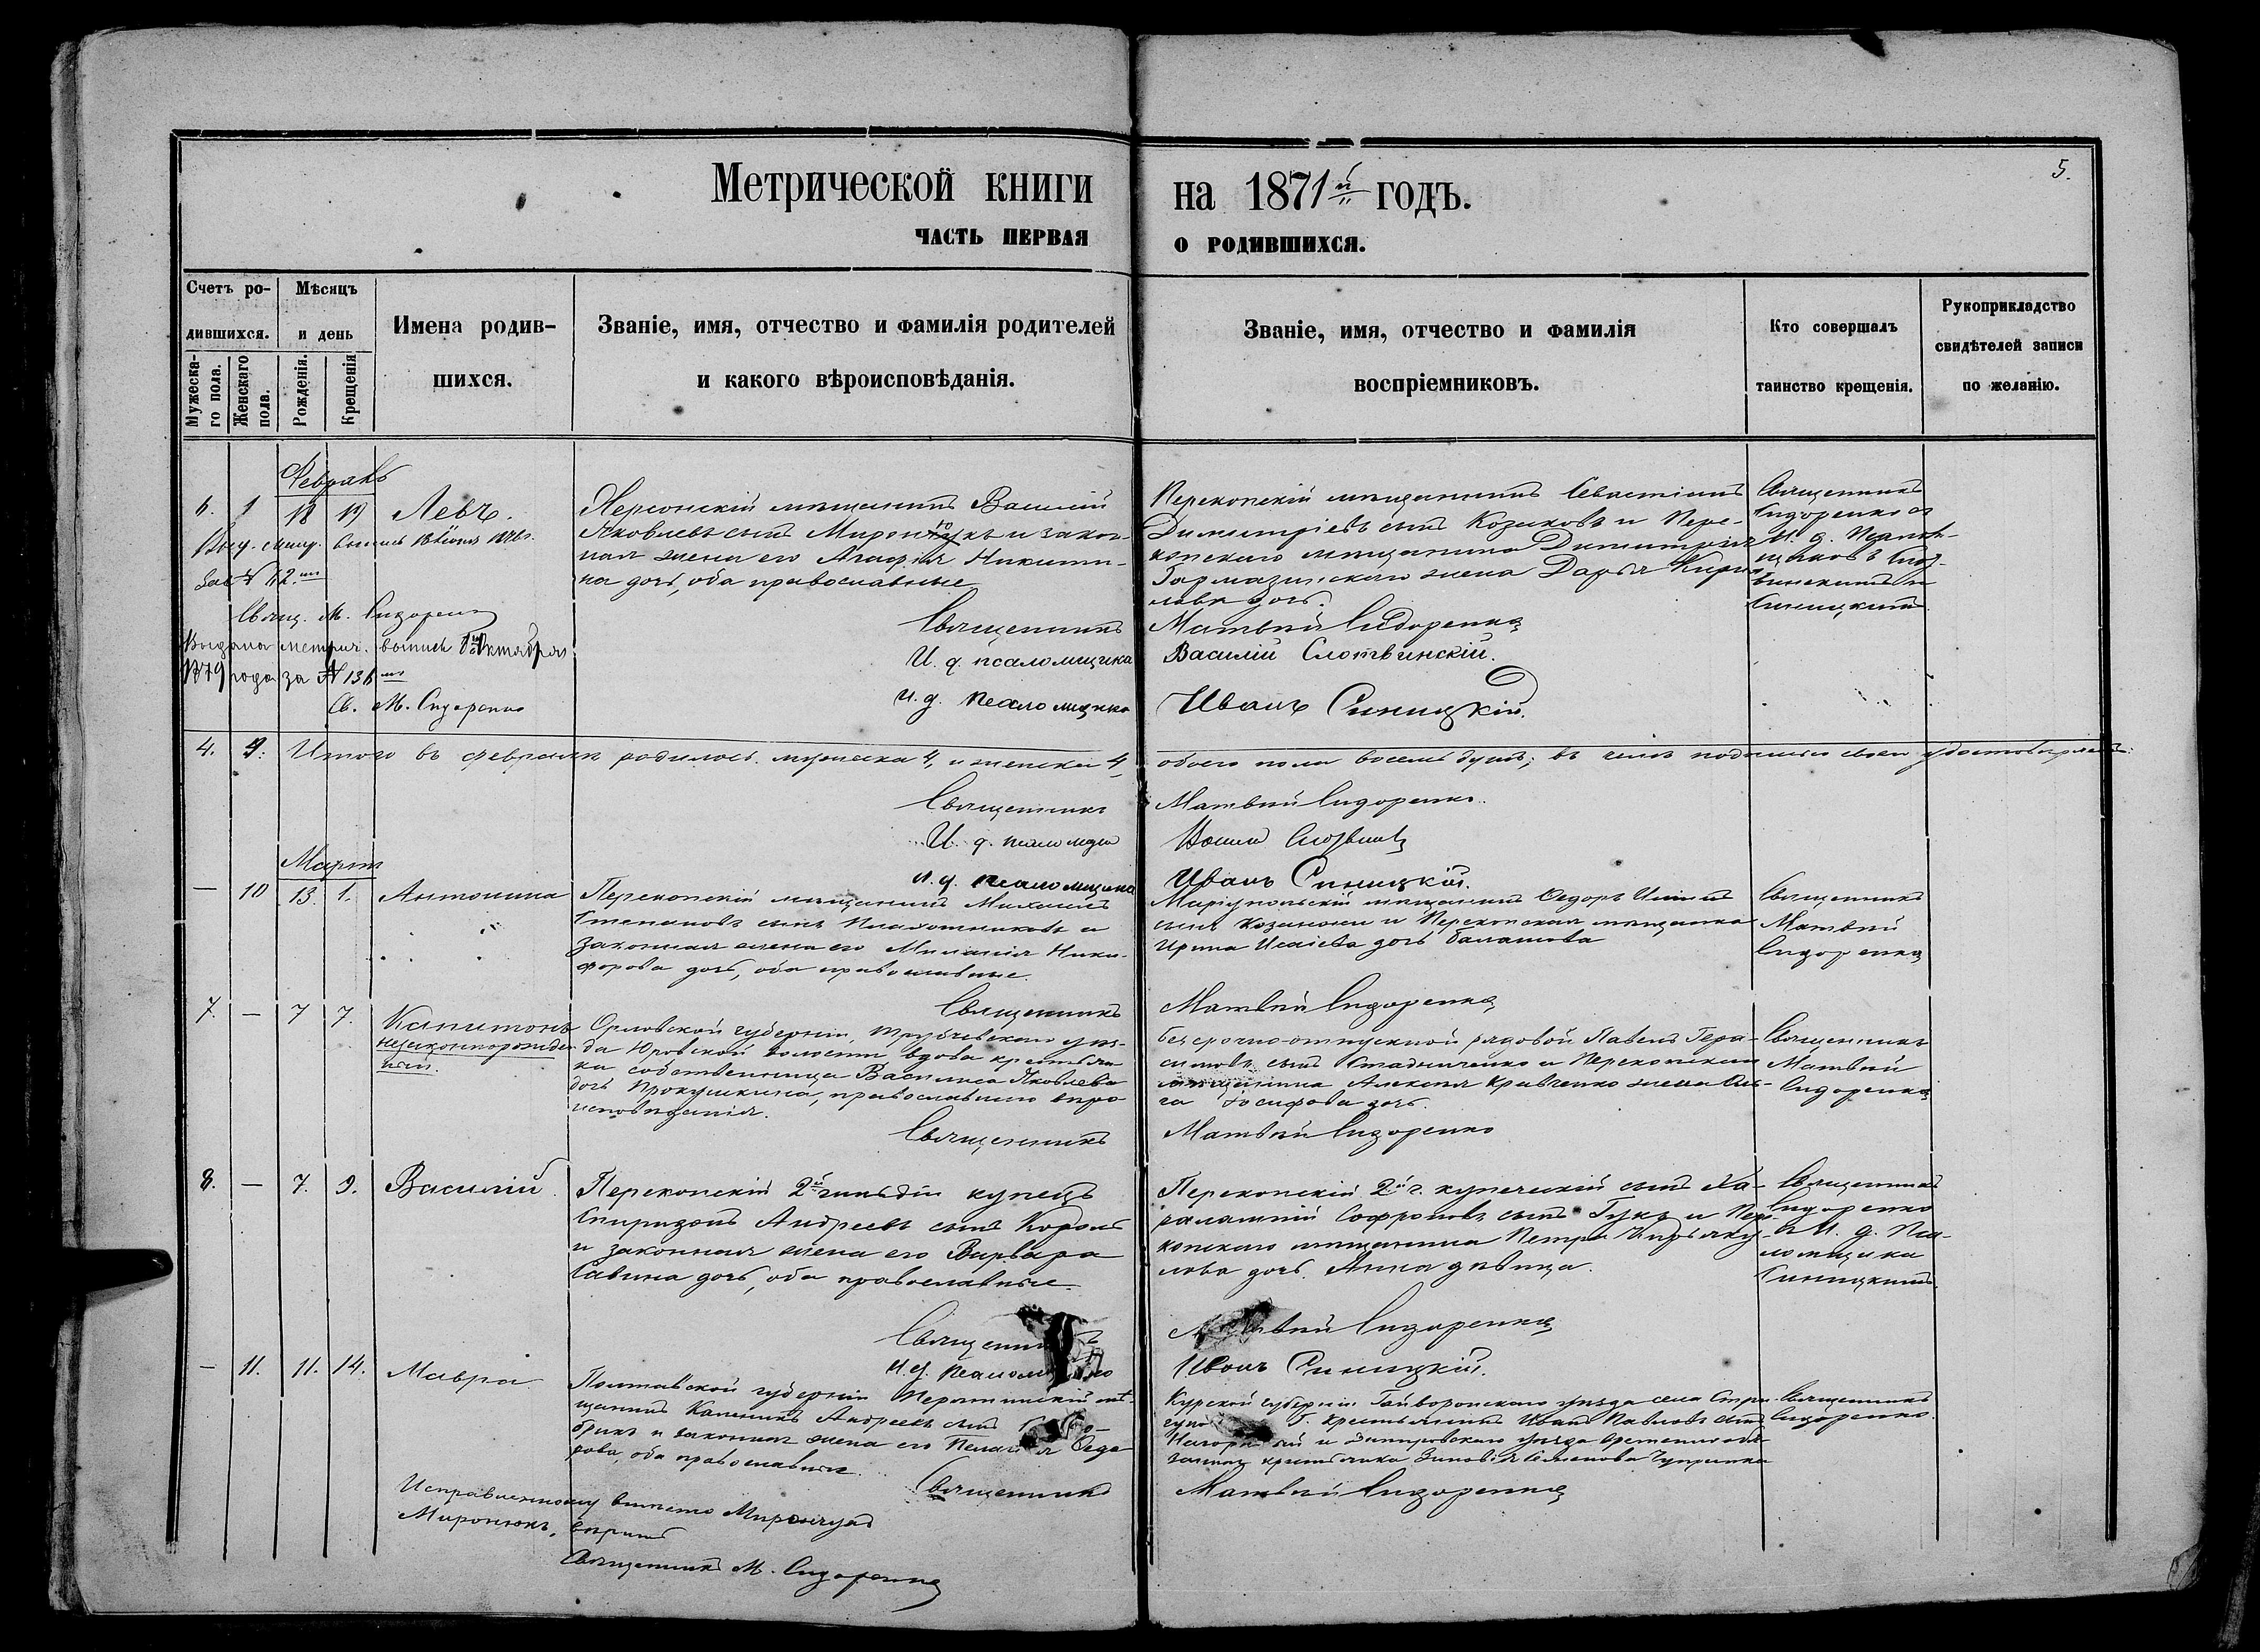 5.
Метрической книги на 1871й годъ.
часть первая о родившихся.
Счетъ родившихся.
Мужескаго пола.
Женскаго пола.
Мѣсяцъ и день
Рожденія.
Крещенія
Имена родившихся.
Званіе, имя, отчество и фамилія родителей
и какого вѣроисповѣданія.
Званіе, имя, отчество и фамилія
воспріемниковъ.
Кто совершалъ
таинство крещенія.
Рукоприкладство
свидѣтелей записи
по желанію.
Февраль
6. 18 19 Левъ.
Херсонскій мѣщанинъ Василій
Яковлевъ сынъ Миронюкъ и закон-
ная жена его Агафія Никити-
на дочь, оба православные
Перекопскій мѣщанинъ Севастіанъ
Димитріевъ сынъ Козаковъ и Пере-
копскаго мѣщанина Димитрія
жена Дарья Кирил-
лова дочь.
Священникъ
Сидоренко и
И. д. Псалом-
щиковъ
Синицкимъ
Свящ. М. Сидоренко
Выдана метрич. выпись Октября
1879 года за № 136
Св. М. Сидоренко
Священникъ Матвѣй Сидоренко
И. д. псаломщика Василій Слотвинскій.
И. д. псаломщика Иванъ Синицкій.
4. 4. Итого въ февралѣ родилось мужеска 4, и женска 4, обоего пола восемь душъ; въ чемъ подписью своею удостовѣряемъ:
Священникъ Матвѣй Сидоренко.
И. д. псаломщ
И. д. псаломщика Иванъ Синицкій.
Мартъ
— 10 1. Антонина
Перекопскій мѣщанинъ Михаилъ
Степановъ сынъ Плахотниковъ и
законная жена его Миланія Ники-
форова дочь, оба православные.
Маріупольскій мѣщанинъ Ѳедоръ
сынъ и Перекопская мѣщанка
Ирина Исаіева дочь Балашова
Священникъ
Матвѣй
Сидоренко
Священникъ Матвѣй Сидоренко
7. — 7 7. Капитонъ
незаконнорожден-
ный.
Орловской губерніи, Трубчевскаго уѣз-
да Юровской волости вдова крестьян-
ка собственница Василиса Яковлева
дочь Прокушкина, православнаго вѣро
исповѣданія.
Безсрочно-отпускной рядовой Павелъ Гера-
симовъ сынъ Стадниченко и Перекопскаго
мѣщанина Алексѣя Кравченко жена Оль-
га Іосифова дочь.
Священникъ
Матвѣй
Сидоренко
Священникъ Матвѣй Сидоренко
8. — 7. 9. Василій
Перекопскій 2й гильдіи купецъ
Спиридонъ Андреевъ сынъ Король
и законная жена его Варвара
Савина дочь, оба православные.
Перекопскій 2й г. купеческій сынъ Ха-
ралампій Софроновъ сынъ Гукъ и Пере-
копскаго мѣщанина Петра
лова дочь Анна дѣвица.
Священникъ
Сидоренко
и И. д. Пса-
ломщика
Синицкимъ.
Священникъ Матвѣй Сидоренко
И. д. псаломщика Иванъ Синицкій.
— 11. 11. 14. Мавра
Полтавской губерніи мѣ-
щанинъ Андреевъ сынъ
и законная жена его Пелагія Ѳедо-
рова, оба православные.
Курской губерніи Гайворонскаго уѣзда села
крестьянинъ Иванъ Павловъ сынъ
и Змѣіевскаго уѣзда временно обя-
занная крестьянка Зиновія Семенова Чуприна
Священникъ
Сидоренко.
Священникъ Матвѣй Сидоренко
Исправленному вмѣсто Мирончукъ
Миронюкъ, вѣрить
Священникъ М. Сидоренко